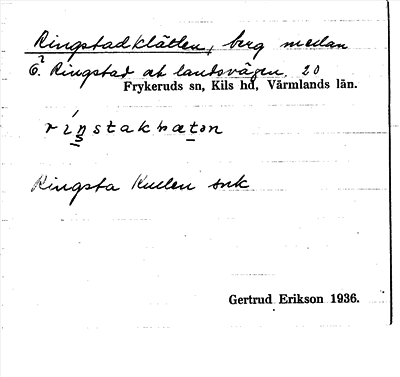 Ringstadklätten, berg medan
Ö. Ringstad och landsvägen. 20
Frykeruds sn, Kils hd, Värmlands län.
Ringsta Kullen snk
Gertrud Erikson 1936.